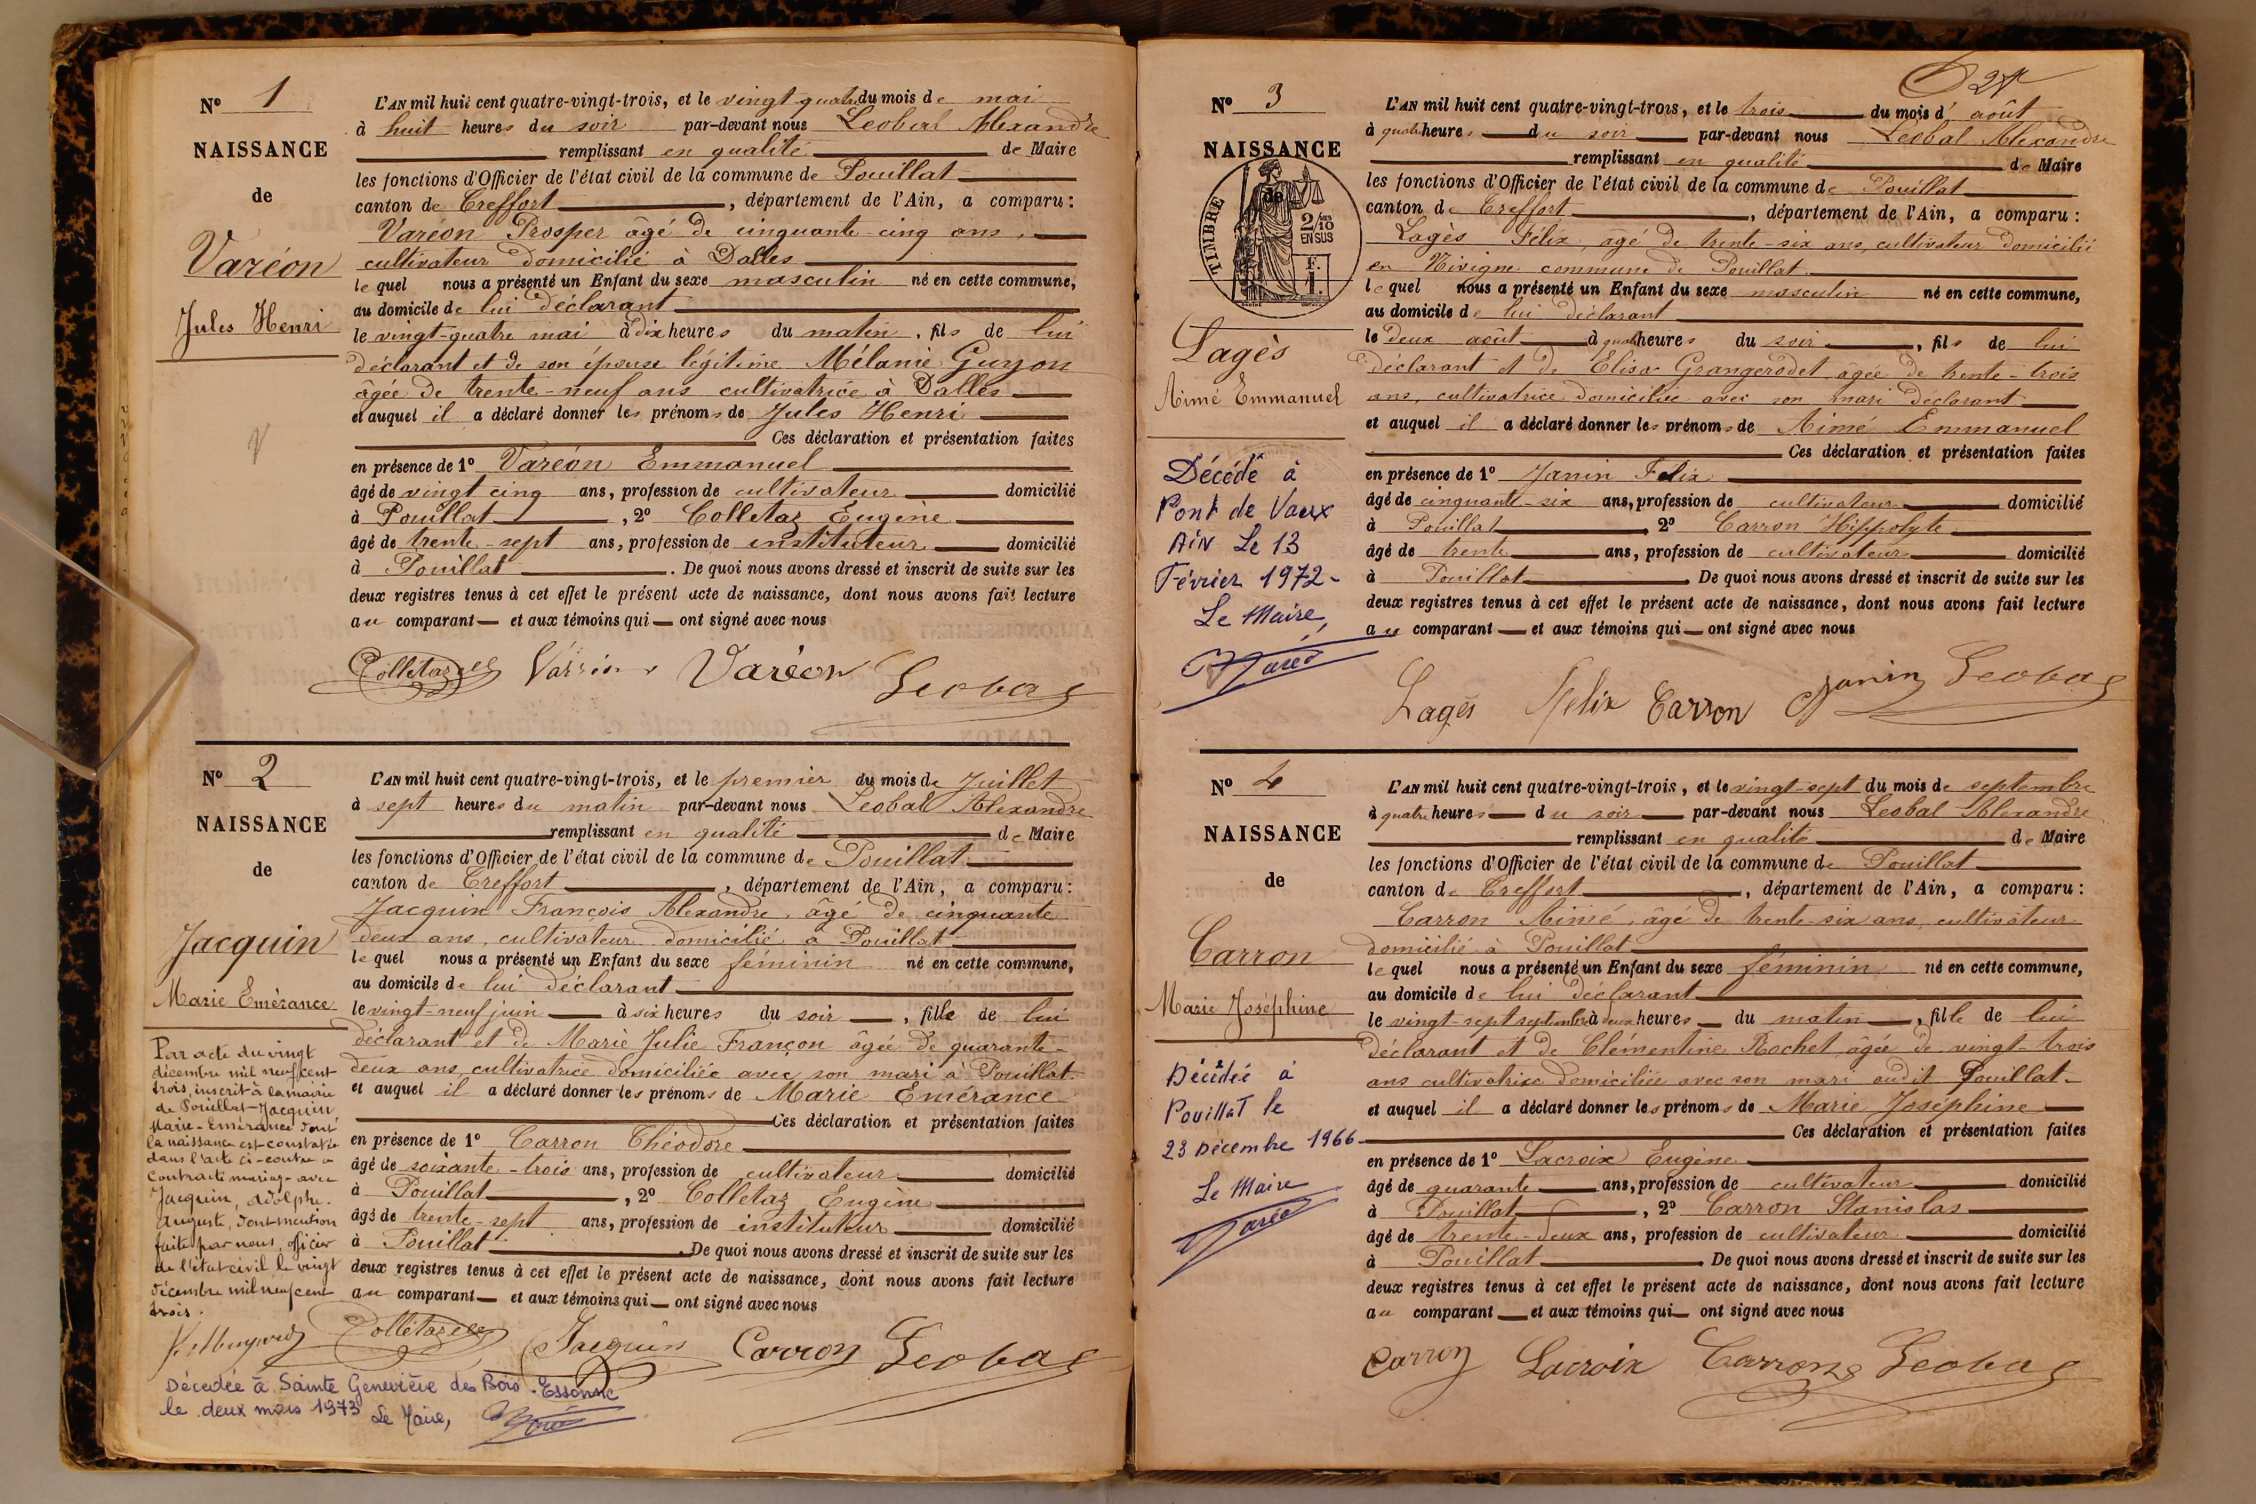 N° 1
NAISSANCE
de
Varéon
Jules Henri
L'AN mil huit cent quatre-vingt-trois, et le vingt-quatre du mois de mai
à huit heures du soir par-devant nous Leobal Alexandre
remplissant en qualité de Maire
les fonctions d'Officier de l'état civil de la commune de Pouillat
canton de Treffort, département de l'Ain, a comparu :
Varéon Prosper âgé de cinquante-cinq ans,
cultivateur domicilié à Dalles
lequel nous a présenté un Enfant du sexe masculin né en cette commune,
au domicile de lui déclarant
le vingt-quatre mai à dix heures du matin, fils de lui
déclarant et de son épouse légitime Mélanie Guyon
âgée de trente-neuf ans cultivatrice à Dalles
et auquel il a déclaré donner les prénoms de Jules Henri
Ces déclaration et présentation faites
en présence de 1° Varéon Emmanuel
âgé de vingt cinq ans, profession de cultivateur domicilié
à Pouillat, 2° Colletaz Eugène
âgé de trente-sept ans, profession de instituteur domicilié
à Pouillat. De quoi nous avons dressé et inscrit de suite sur les
deux registres tenus à cet effet le présent acte de naissance, dont nous avons fait lecture
au comparant et aux témoins qui ont signé avec nous
Colletaz Varéon Varéon Leobal
N° 2
NAISSANCE
de
Jacquin
Marie Emérance
Par acte du vingt
décembre mil neuf cent
trois, inscrit à la mairie
de Pouillat-Jacquin
Marie-Emérance dont
la naissance est constatée
dans l'acte ci-contre a
contracté mariage avec
Jacquin, Adolphe.
Auguste, dont mention
faite par nous, officier
de l'état civil le vingt
décembre mil neuf cent
trois.
L'AN mil huit cent quatre-vingt-trois, et le premier du mois de Juillet
à sept heures du matin par-devant nous Leobal Alexandre
remplissant en qualité de Maire
les fonctions d'Officier de l'état civil de la commune de Pouillat
canton de Treffort, département de l'Ain, a comparu :
Jacquin François Alexandre, âgé de cinquante
deux ans, cultivateur domicilié à Pouillat
lequel nous a présenté un Enfant du sexe féminin né en cette commune,
au domicile de lui déclarant
le vingt-neuf juin à six heures du soir, fille de lui
déclarant et de Marie Julie Françon âgée de quarante-
deux ans, cultivatrice domiciliée avec son mari à Pouillat
et auquel il a déclaré donner les prénoms de Marie Emérance
Ces déclaration et présentation faites
en présence de 1° Carron Théodore
âgé de soixante-trois ans, profession de cultivateur domicilié
à Pouillat, 2° Colletaz Eugène
âgé de trente-sept ans, profession de instituteur domicilié
à Pouillat. De quoi nous avons dressé et inscrit de suite sur les
deux registres tenus à cet effet le présent acte de naissance, dont nous avons fait lecture
au comparant et aux témoins qui ont signé avec nous
Colletaz Jacquin Carron Leobal
Décedée à Sainte Geneviève des Bois. Essonne
le deux mars 1973 Le Maire,
N° 3
NAISSANCE
de
TIMBRE
2/10 EN SUS
Lagès
Aimé Emmanuel
Décédé à
Pont de Vaux
Ain Le 13
Février 1972-
Le Maire,
L'AN mil huit cent quatre-vingt-trois, et le trois du mois d'août
à quatre heures du soir par-devant nous Leobal Alexandre
remplissant en qualité de Maire
les fonctions d'Officier de l'état civil de la commune de Pouillat
canton de Treffort, département de l'Ain, a comparu :
Lagès Félix, âgé de trente-six ans, cultivateur domicilié
en Nivigne commune de Pouillat
lequel nous a présenté un Enfant du sexe masculin né en cette commune,
au domicile de lui déclarant
le deux août à quatre heures du soir, fils de lui
déclarant et de Elisa Grangerodet âgée de trente-trois
ans, cultivatrice domiciliée avec son mari déclarant
et auquel il a déclaré donner les prénoms de Aimé Emmanuel
Ces déclaration et présentation faites
en présence de 1° Janin Felix
âgé de cinquante-six ans, profession de cultivateur domicilié
à Pouillat 2° Carron Hippolyte
âgé de trente ans, profession de cultivateur domicilié
à Pouillat. De quoi nous avons dressé et inscrit de suite sur les
deux registres tenus à cet effet le présent acte de naissance, dont nous avons fait lecture
au comparant et aux témoins qui ont signé avec nous
Lagès Felix Carron Janin Leobal
N° 4
NAISSANCE
de
Carron
Marie Joséphine
Décédée à
Pouillat le
23 Décembre 1966-
Le Maire
L'AN mil huit cent quatre-vingt-trois, et le vingt-sept du mois de septembre
à quatre heures du soir par-devant nous Leobal Alexandre
remplissant en qualité de Maire
les fonctions d'Officier de l'état civil de la commune de Pouillat
canton de Treffort, département de l'Ain, a comparu :
Carron Aimé, âgé de trente-six ans, cultivateur
domicilié à Pouillat
lequel nous a présenté un Enfant du sexe féminin né en cette commune,
au domicile de lui déclarant
le vingt-sept septembre à deux heures du matin, fille de lui
déclarant et de Clémentine Rochet âgée de vingt-trois
ans cultivatrice domiciliée avec son mari audit Pouillat
et auquel il a déclaré donner les prénoms de Marie Joséphine
Ces déclaration et présentation faites
en présence de 1° Lacroix Eugène
âgé de quarante ans, profession de cultivateur domicilié
à Pouillat, 2° Carron Stanislas
âgé de trente-deux ans, profession de cultivateur domicilié
à Pouillat. De quoi nous avons dressé et inscrit de suite sur les
deux registres tenus à cet effet le présent acte de naissance, dont nous avons fait lecture
au comparant et aux témoins qui ont signé avec nous
Carron Lacroix Carron S Leobal